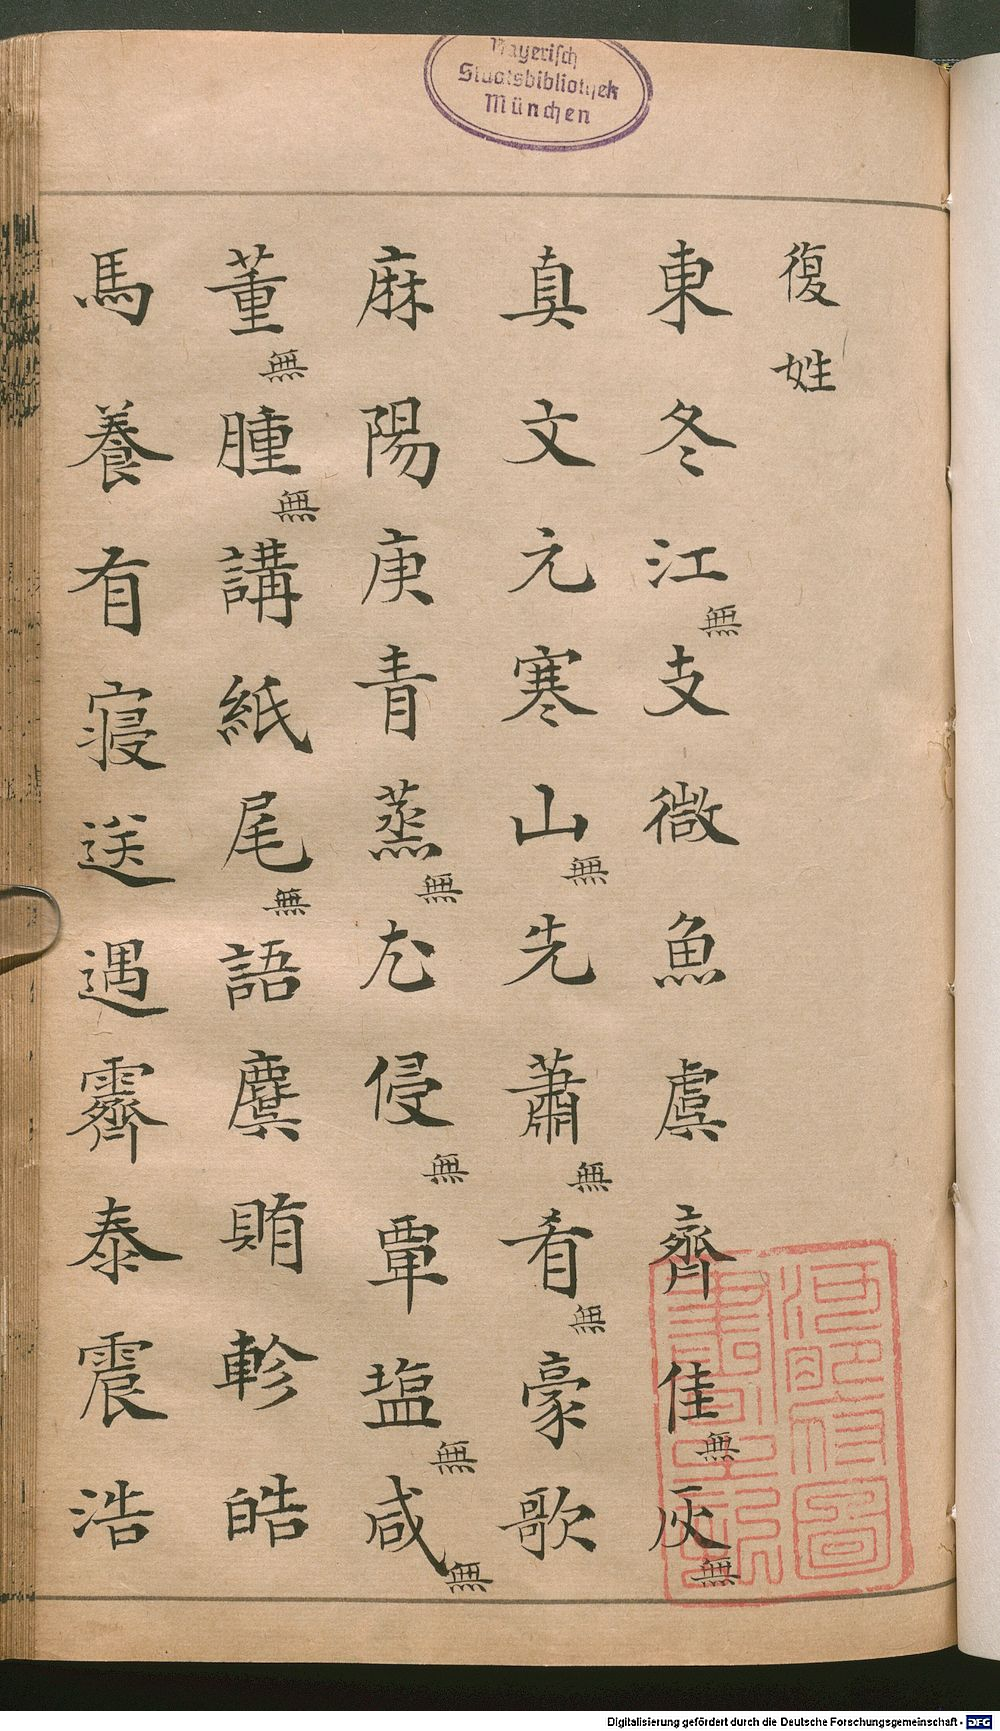 Bayerisch
Staatsbibliothek
München
復姓
東冬江無支微魚虞齊佳無灰無
真文元寒山無先蕭無肴無豪歌
麻陽庚青蒸無尤侵無覃塩無咸無
董無腫無講紙尾無語麌賄軫皓
馬養有寢送遇霽泰震浩
Digitalisierung gefördert durch die Deutsche Forschungsgemeinschaft - DFG